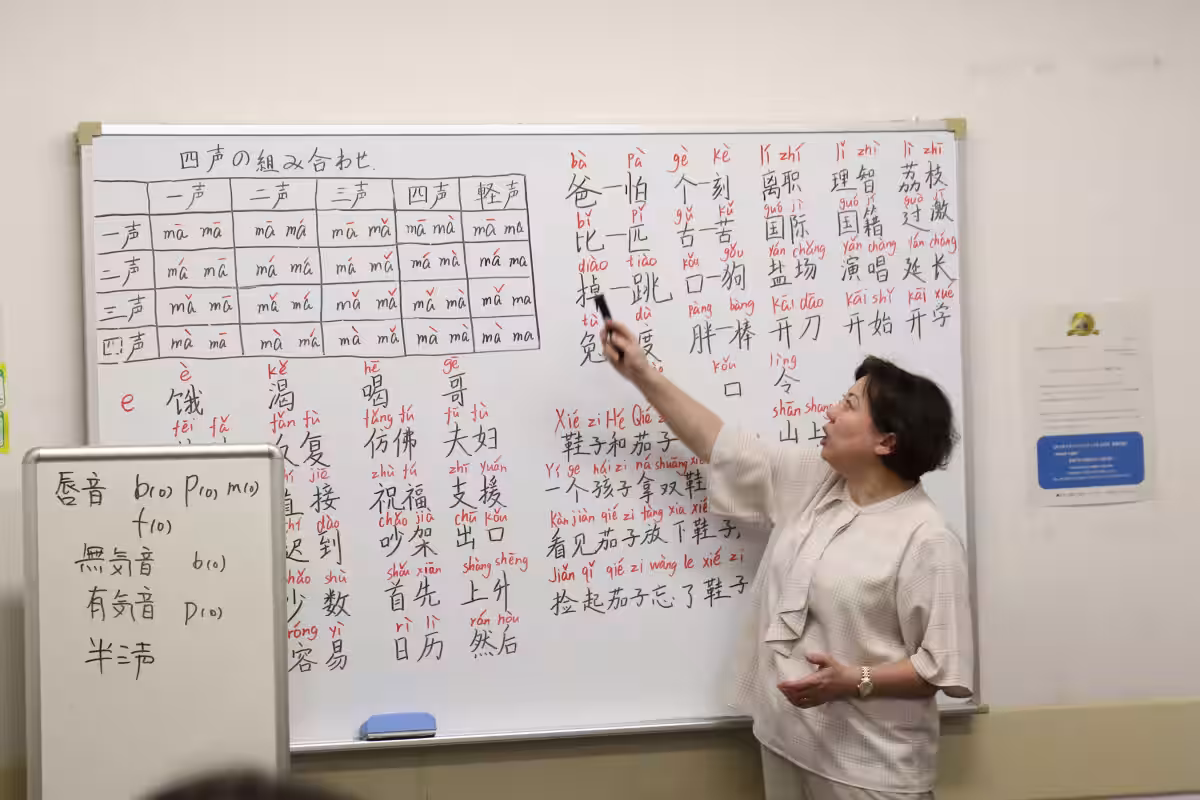 四声の組み合わせ.
一声 二声 三声 四声 軽声
一声 mā mā mā má mā mǎ mā mà mā ma
二声 má mā má má má mǎ má mà má ma
三声 mǎ mā mǎ má mǎ mǎ mǎ mà mǎ ma
四声 mà mā mà má mà mǎ mà mà mà ma
è kě hē gē
e 饿 渴 喝 哥
fēi fǎ fǎn fù fǎng fú fū fù
复 仿佛 夫妇
jiē zhù fú zhī yuán
直接 祝福 支援
dào chǎo jià chū kǒu
迟到 吵架 出口
shù shǒu xiān shàng shēng
少数 首先 上升
róng yì rì lì rán hòu
容易 日历 然后
bà pà gè kè lí zhí lǐ zhì lì zhī
爸—怕 个—刻 离职 理智 荔枝
bǐ pǐ gǔ kǔ guó jì guó jí guò jī
比—匹 古—苦 国际 国籍 过激
diào tiào kǒu gǒu yán chǎng yǎn chàng yán cháng
掉—跳 口—狗 盐场 演唱 延长
tù dù pàng bàng kāi dāo kāi shǐ kāi xué
兔 度 胖—棒 开刀 开始 开学
kǒu lìng
口 令
shān shang
山上
Xié zi Hé Qié z
鞋子和茄子
Yí ge hái zi ná shuāng xié
一个孩子拿双鞋
kàn jiàn qié zi fàng xià xié
看见茄子放下鞋子,
Jiǎn qǐ qié zi wàng le xié zi
捡起茄子忘了鞋子
唇音 b(o) p(o) m(o)
f(o)
無気音 b(o)
有気音 p(o)
半三声